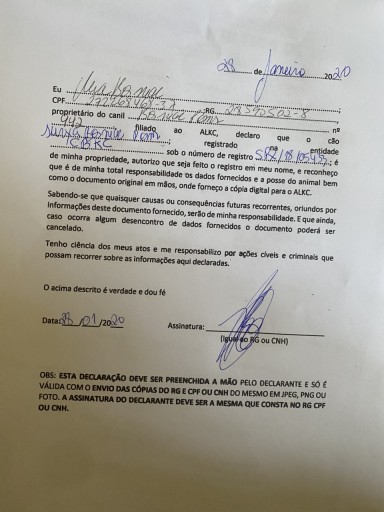 28 de Janeiro 2020
Eu
CPF RG
proprietário do canil nº
442 filiado ao ALKC, declaro que o cão
registrado entidade
sob o número de registro ; é
de minha propriedade, autorizo que seja feito o registro em meu nome, e reconheço
que é de minha total responsabilidade os dados fornecidos e a posse do animal bem
como o documento original em mãos, onde forneço a cópia digital para o ALKC.
Sabendo-se que quaisquer causas ou consequências futuras recorrentes, oriundos por
informações deste documento fornecido, serão de minha responsabilidade. E que ainda,
caso ocorra algum desencontro de dados fornecidos o documento poderá ser
cancelado.
Tenho ciência dos meus atos e me responsabilizo por ações cíveis e criminais que
possam recorrer sobre as informações aqui declaradas.
O acima descrito é verdade e dou fé
Data: 28/01/2020 Assinatura:
(Igual do RG ou CNH)
OBS: ESTA DECLARAÇÃO DEVE SER PREENCHIDA A MÃO PELO DECLARANTE E SÓ É
VÁLIDA COM O ENVIO DAS CÓPIAS DO RG E CPF OU CNH DO MESMO EM JPEG, PNG OU
FOTO. A ASSINATURA DO DECLARANTE DEVE SER A MESMA QUE CONSTA NO RG CPF
OU CNH.